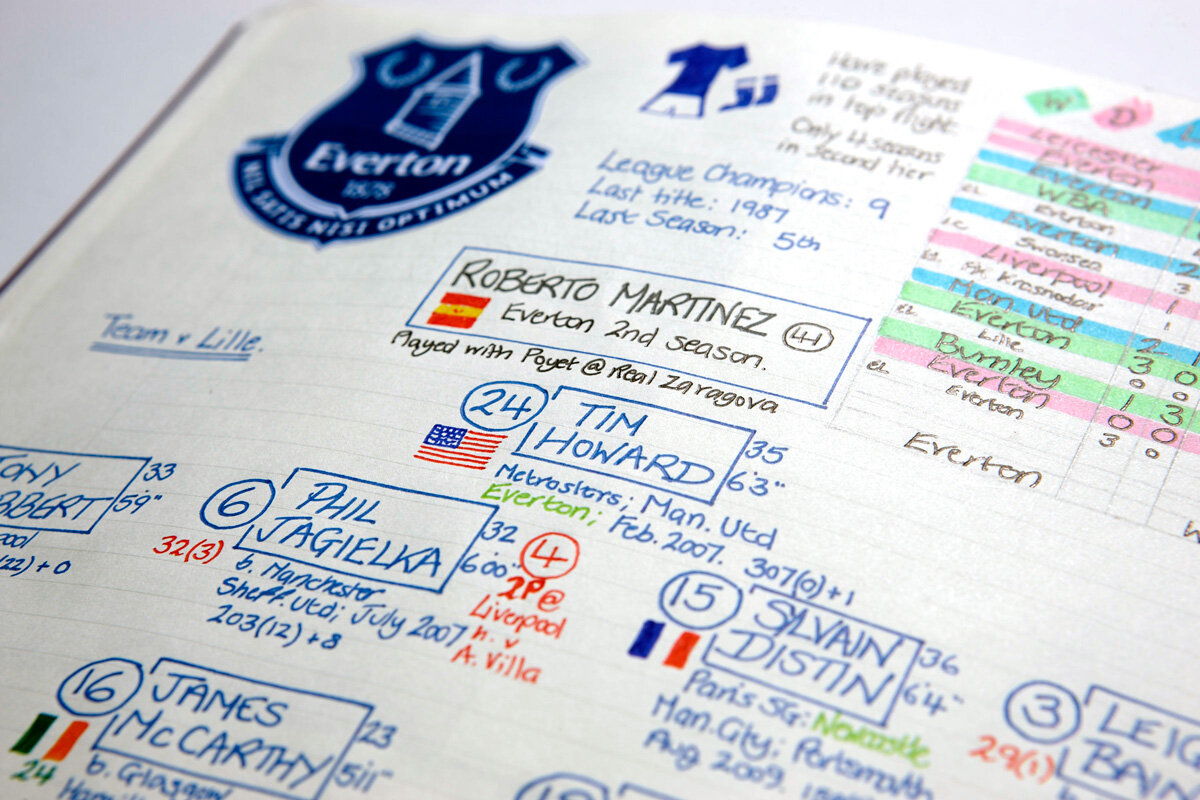 Everton
1878
NIL SATIS NISI OPTIMUM
Have played
110 seasons
in top flight.
Only 4 seasons
in second tier
League Champions: 9
Last title: 1987
Last Season: 5th
W D
Leicester
Everton
Everton
WBA
EL Everton
Everton
LC Swansea
Liverpool
EL F.K. Krasnodar
Man Utd
Everton
EL Lille
Burnley
Everton
EL Everton
Everton
2
3
1
1
2 1
3 0
0 0
1 3
0 0
3 0
ROBERTO MARTINEZ 41
Everton 2nd season.
Played with Poyet @ Real Zaragova
Team v Lille.
24 TIM
HOWARD
35
6'3"
Metrostars; Man. Utd
Everton; Feb. 2007.
307(0)+1
TONY
BBERT
33
5'9"
pool
(22) + 0
6 PHIL
JAGIELKA
32
6'00"
32(3)
b. Manchester
Sheff. Utd; July 2007
203(12) + 8
4
2P@
Liverpool
h. v
A. Villa
15 SYLVAIN
DISTIN
36
6'4"
Paris SG: Newcastle
Man. City; Portsmouth
Aug 2009.
16 JAMES
McCARTHY
23
5'11"
24
b. Glasgow
3 LEIG
BAIN
29(1)